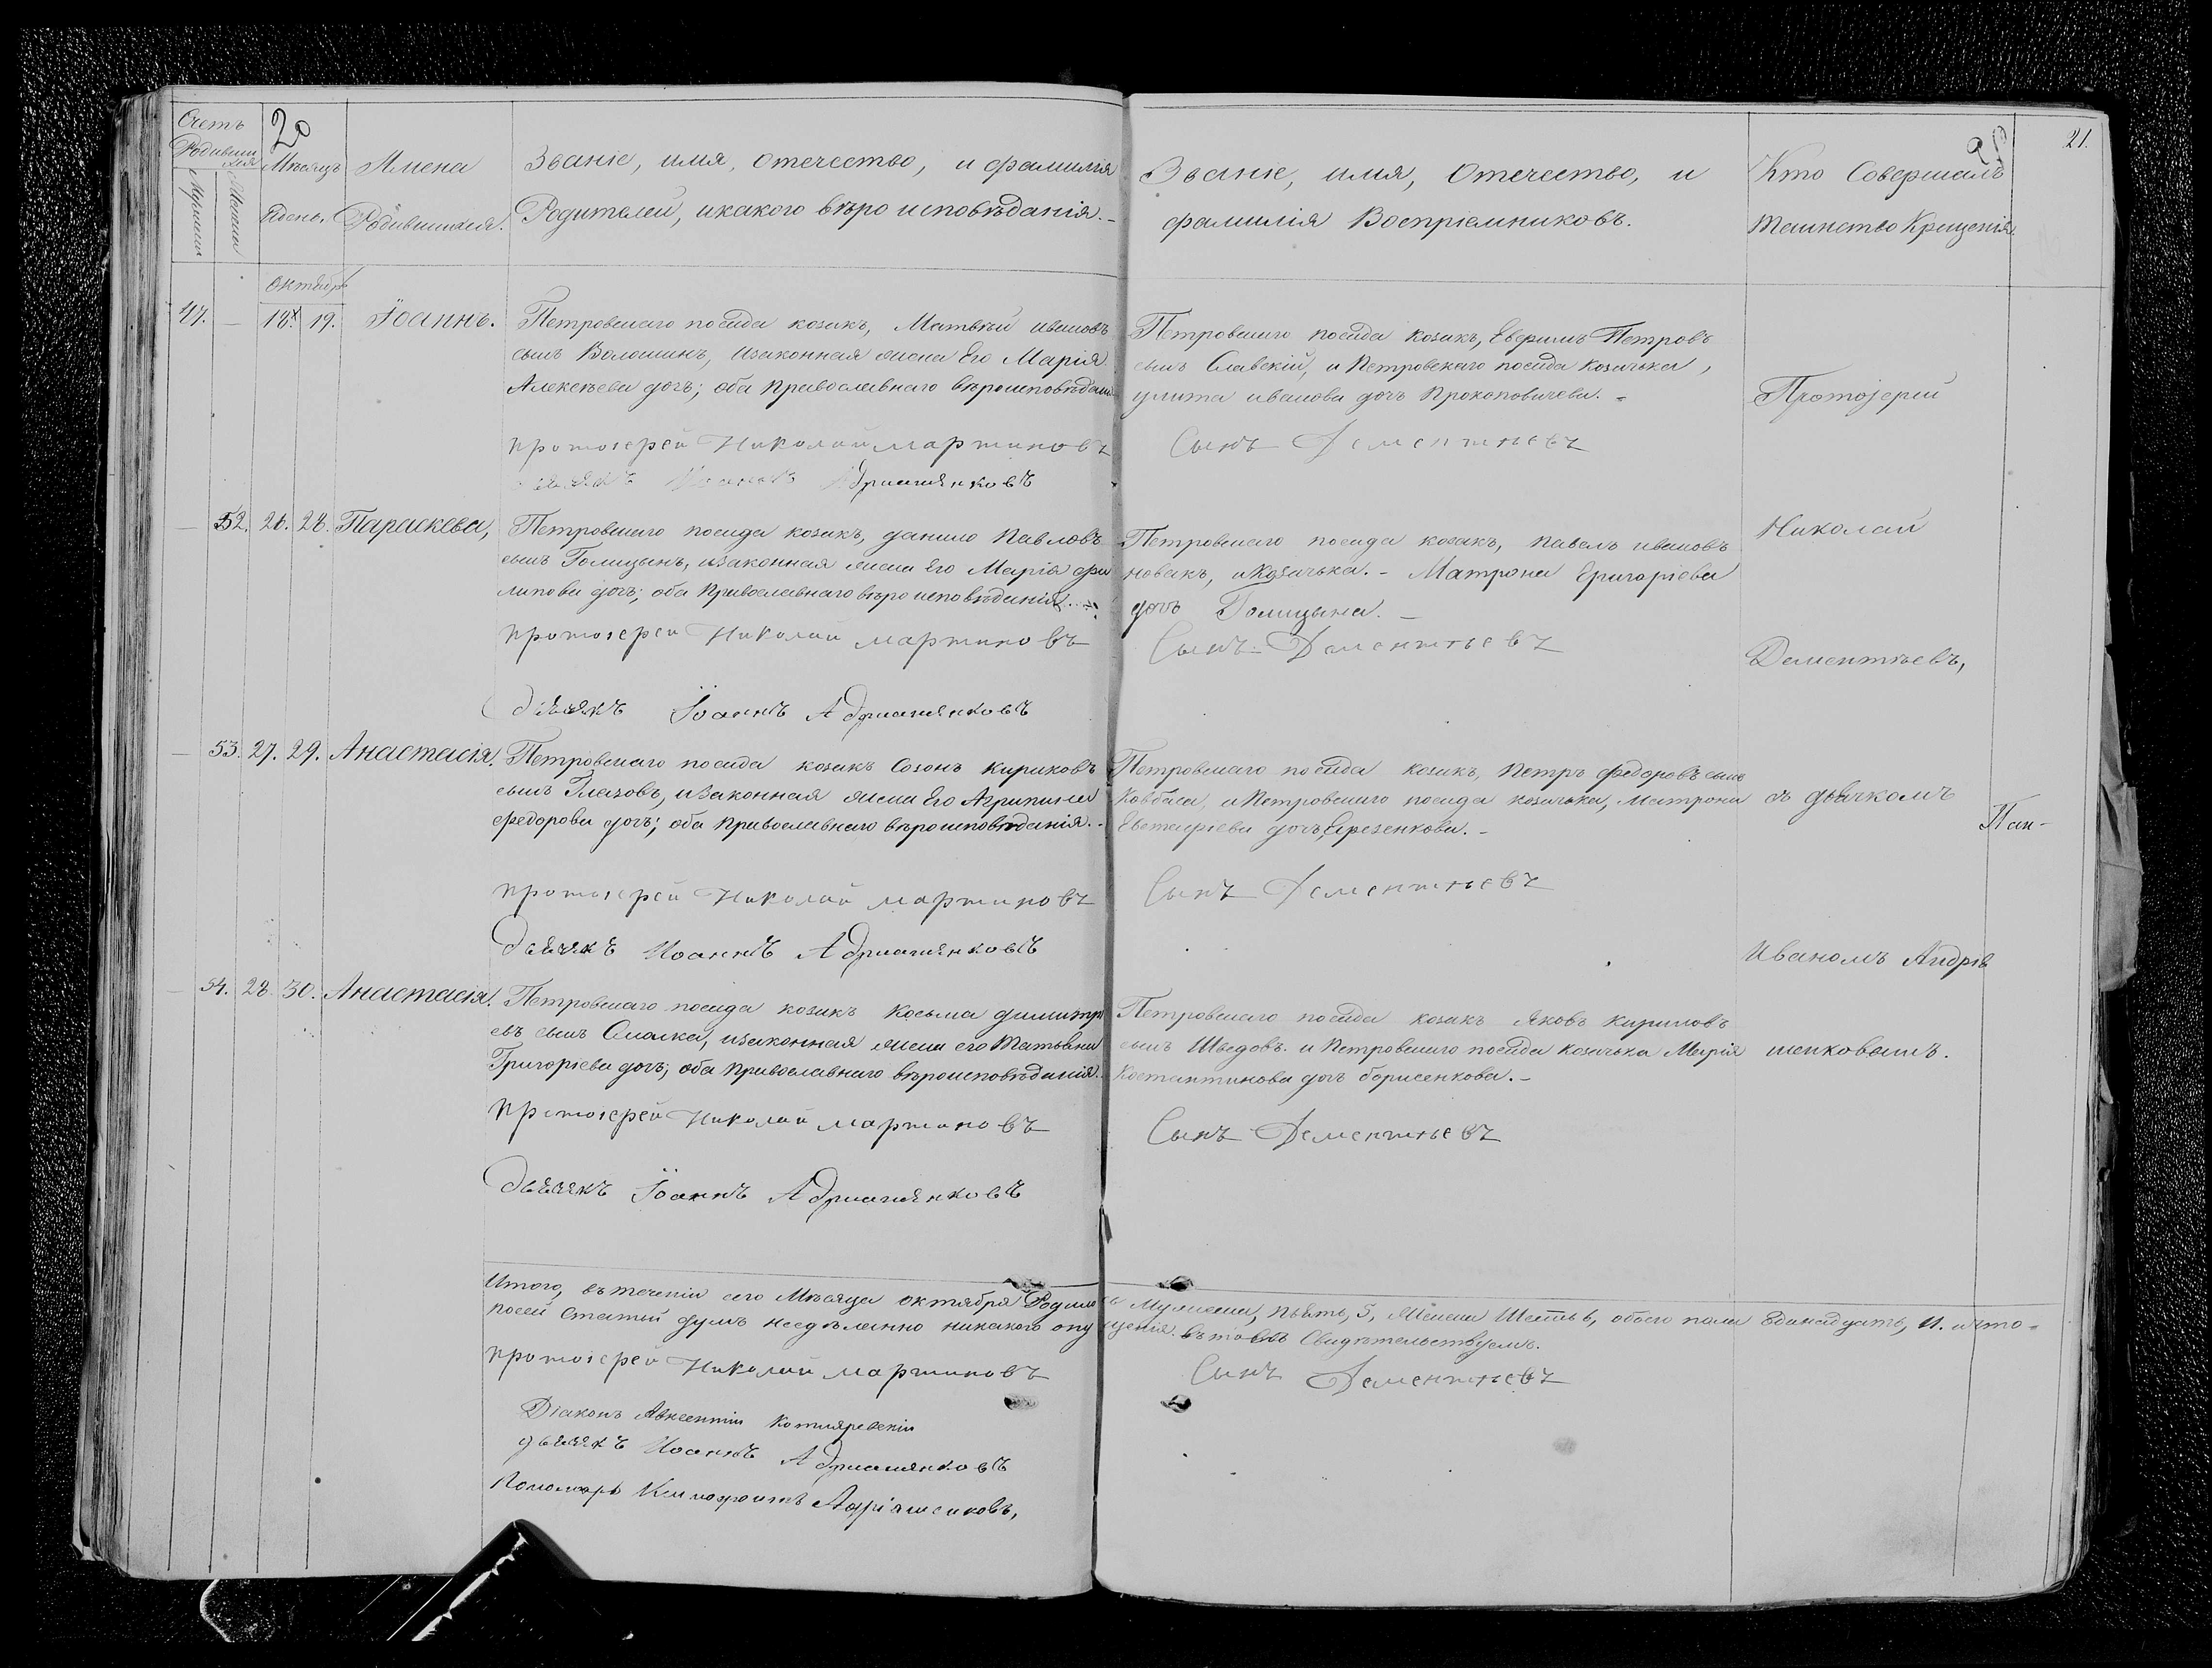 20
21.
Счетъ
Родивши
хся
Мужеска
Женска
Мѣсяцъ
и день.
Имена
Родившихся.
Званіе, имя, отечество, и фамилія
Родителей, и какого вѣро исповѣданія. –
Званіе, имя, Отечество, и
фамилія Воспріемниковъ.
Кто Совершалъ
таинство Крещенія
октябрь
47. – 18. 19. Іоаннъ.
Петровскаго посада козакъ, Матвѣй ивановъ
сынъ Волошинъ, изаконная жена Его Марія
Алексѣева дочь; оба Православнаго вѣроисповѣдан.
Петровскаго посада козакъ, Петровъ
сынъ Славскій, и Петровскаго посада Козачька,
улита иванова дочь Прокоповичева. –
протоіерей Николай мартиновъ
Сынъ Дементьевъ
дьячекъ Иоаннъ Адрияшенковъ
– 52. 26. 28. Параскева,
Петровскаго посада козакъ, данило Павловъ
сынъ Голицынъ, изаконная жена Его Марія фи
липова дочь; оба Православнаго вѣро исповѣданія.
Петровскаго посада козакъ, павелъ ивановъ
новакъ, и Козачька. – Матрона Григоріева
дочь Голицына. –
протоіерей Николай мартиновъ
Сынъ Дементьевъ
дьячекъ Іоаннъ Адрияшенковъ
– 53. 27. 29. Анастасія.
Петровскаго посада козакъ Созонъ кириковъ
сынъ Глазовъ, изаконная жена Его Агрипина
федорова дочь; оба Православнаго вѣроисповѣданія. –
Петровскаго посада козакъ, Петръ федоровъ сынъ
Ковбаса, и Петровскаго посада козачька, Матрона
Евстафіева дочь –
протоіерей Николай мартиновъ
Сынъ Дементьевъ
дьячекъ Иоаннъ Адрияшенковъ
– 54. 28. 30. Анастасія.
Петровскаго посада козакъ Косьма димитрі
евъ сынъ изаконная жена его Татьяна
Григоріева дочь; оба Православнаго вѣроисповѣданія.
Петровскаго посада козакъ Яковъ Кириловъ
сынъ Шведовъ. и Петровскаго посада Козачька Марія
Костантинова дочь борисенкова. –
протоіерей Николай мартиновъ
Сынъ Дементьевъ
дьячекъ Іоаннъ Адрияшенковъ
Протоіерей
Николай
Дементьевъ,
съ дьячкомъ
Иваномъ Андрія
шенковымъ.
Пан-
Итого, въ теченіи сего Мѣсяца октября Родилось Мужеска, пьять, 5, Женска Шесть 6, обоего пола Едина́дцать, 11. и что-
посей Статьи думъ несдѣланно никакого опущенія. въ томъ Свидѣтельствуемъ.
протоіерей Николай мартиновъ
Сынъ Дементьевъ
Діаконъ Авксентіи Котляревскіи
дьячекъ Иоаннъ Адрияшенковъ
Пономарь Ксинофонтъ Адріяшенковъ,